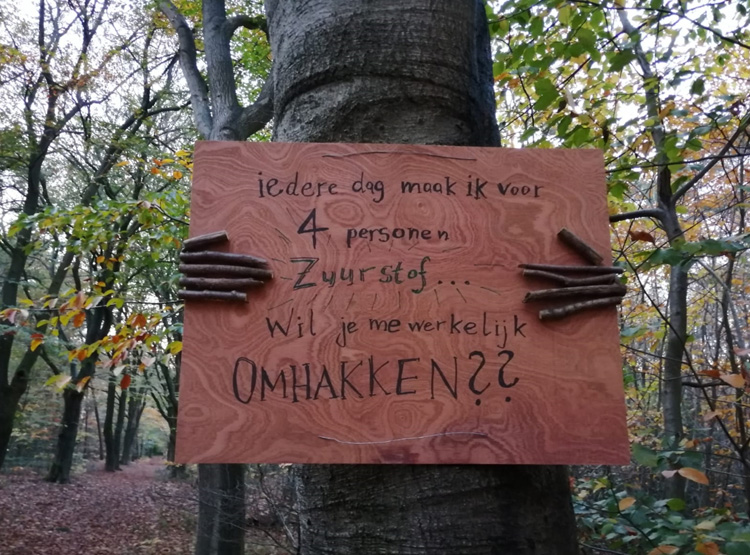 iedere dag maak ik voor
4 personen
Zuurstof...
Wil je me werkelijk
OMHAKKEN??